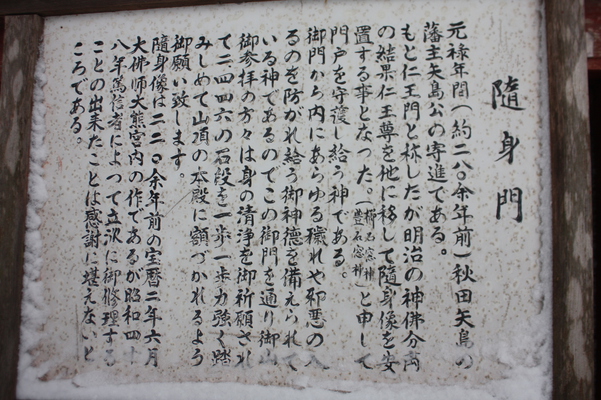 隨身門
元禄年間(約二八〇余年前)秋田矢島の
藩主矢島公の寄進である。
もと仁王門と称したが明治の神佛分离
の結果仁王尊を他に移して隨身像を安
置する事となった。(櫛石窓神 豊石窓神)と申して
門戸を守護し給う神である。
御門から内にあらゆる穢れや邪悪の入
るのを防がれ給う御神徳を備えられて
いる神であるのでこの御門を通り御山
御参拝の方々は身の清浄を御祈願され
て二四四六の石段を一歩一歩力強く踏
みしめて山頂の本殿に額づかれるよう
御願い致します。
隨身像は二二〇余年前の宝暦二年六月
大佛师大熊宮内の作であるが昭和四十
八年篤信者によって立派に御修理する
ことの出来たことは感謝に堪えないと
ころである。